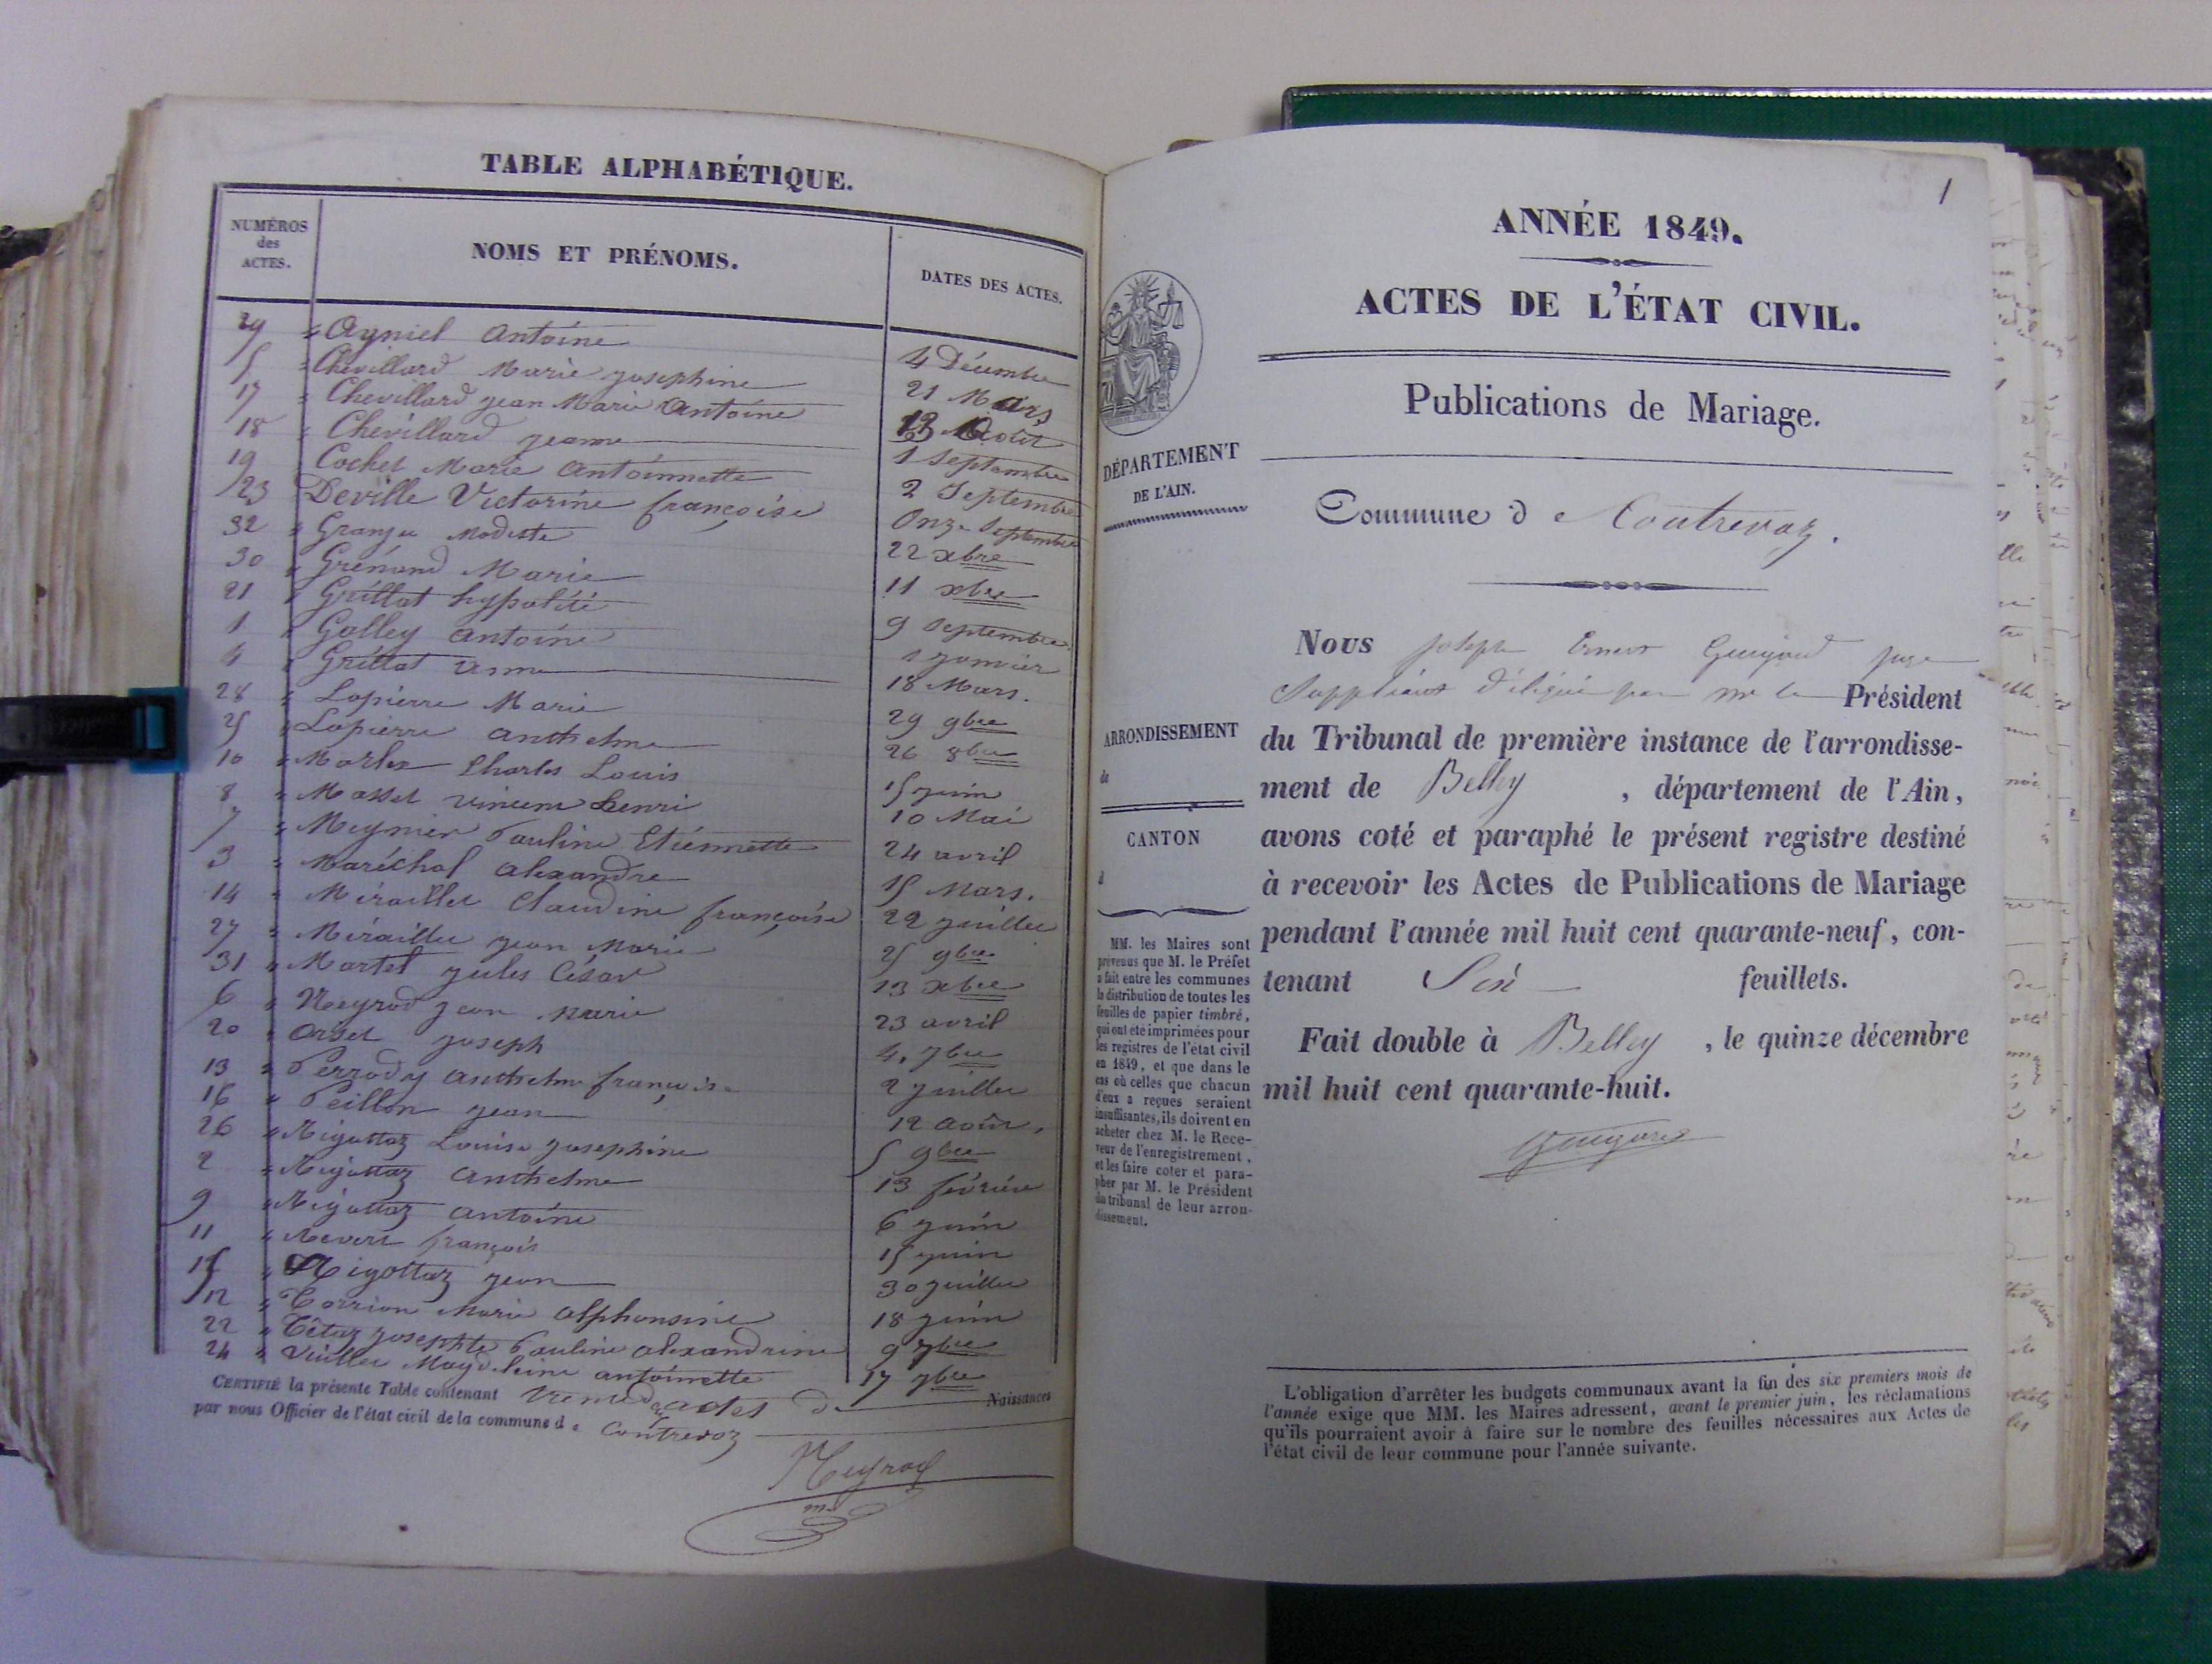 TABLE ALPHABÉTIQUE.
NUMÉROS
des
ACTES.
NOMS ET PRÉNOMS.
DATES DES ACTES.
29 " Ayniel Antoine 4 Décembre
5 " Chevillard Marie josephine 21 Mars
17 " Chevillard jean Marie Antoine 13 Août
18 " Chevillard jeanne 1 Septembre
19 " Cochet Marie Antoinnette 2 Septembre
23 Deville Victorine françoise Onze Septembre
32 " Granju Modeste 22 xbre
30 " Grémond Marie 11 xbre
21 " Grillat hypolite 9 Septembre
1 " Golley Antoine 1 janvier
4 " Grillat 18 Mars.
28 " Lapierre Marie 29 9bre
25 " Lapierre Anthelme 26 8bre
10 " Charles Louis 15 juin
8 " Masset Vincent henri 10 Mai
7 " Meynier Pauline Etiennette 24 avril
3 " Maréchal Alexandre 15 Mars.
14 " Miraillet Claudine françoise 22 juillet
27 " Miraillet jean Marie 25 9bre
31 " Martel jules César 13 xbre
6 " Neyrod jean Marie 23 avril
20 " Orset joseph 4, 7bre
13 " Perrody Anthelme françoise 2 juillet
16 " Peillon jean 12 août,
26 " Rigottaz Louise josephine 5 9bre
2 " Rigottaz Anthelme 13 février
9 " Rigottaz Antoine 6 juin
11 " Revert françois 15 juin
15 " Rigottaz jean 30 juillet
12 " Torrion Marie Alphonsine 18 juin
22 " Têtaz josephte Pauline Alexandrine 9 7bre
24 " Vuillet Magdeleine antoinette 17 7bre
CERTIFIÉ la présente Table contenant Trente deux actes de Naissances
par nous Officier de l'état civil de la commune de Contrevoz
Neyrod
m
1
ANNÉE 1849.
ACTES DE L'ÉTAT CIVIL.
Publications de Mariage.
DÉPARTEMENT
DE L'AIN.
Commune de Contrevoz.
ARRONDISSEMENT
de
CANTON
d
MM. les Maires sont
prévenus que M. le Préfet
a fait entre les communes
la distribution de toutes les
feuilles de papier timbré,
qui ont été imprimées pour
les registres de l'état civil
en 1849, et que dans le
cas où celles que chacun
d'eux a reçues seraient
insuffisantes, ils doivent en
acheter chez M. le Rece-
veur de l'enregistrement,
et les faire coter et para-
pher par M. le Président
du tribunal de leur arron-
dissement.
Nous joseph Ernest juge
Suppléant délégué par mr le Président
du Tribunal de première instance de l'arrondisse-
ment de Belley, département de l'Ain,
avons coté et paraphé le présent registre destiné
à recevoir les Actes de Publications de Mariage
pendant l'année mil huit cent quarante-neuf, con-
tenant Six feuillets.
Fait double à Belley, le quinze décembre
mil huit cent quarante-huit.
L'obligation d'arrêter les budgets communaux avant la fin des six premiers mois de
l'année exige que MM. les Maires adressent, avant le premier juin, les réclamations
qu'ils pourraient avoir à faire sur le nombre des feuilles nécessaires aux Actes de
l'état civil de leur commune pour l'année suivante.